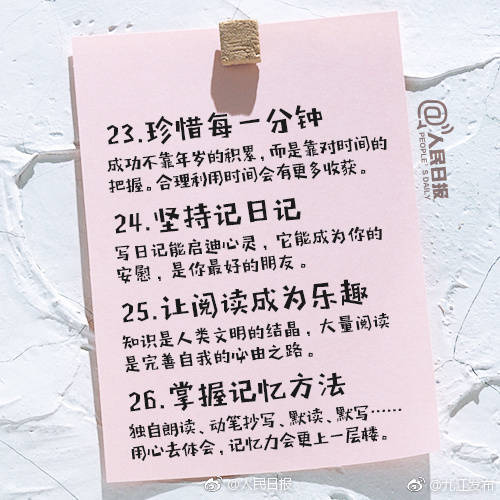 23.珍惜每一分钟
成功不靠年岁的积累，而是靠对时间的
把握。合理利用时间会有更多收获。
24.坚持记日记
写日记能启迪心灵，它能成为你的
安慰，是你最好的朋友。
25.让阅读成为乐趣
知识是人类文明的结晶，大量阅读
是完善自我的必由之路。
26.掌握记忆方法
独自朗读、动笔抄写、默读、默写……
用心去体会，记忆力会更上一层楼。
@人民日报
PEOPLE'S DAILY
@人民日报
@九江发布